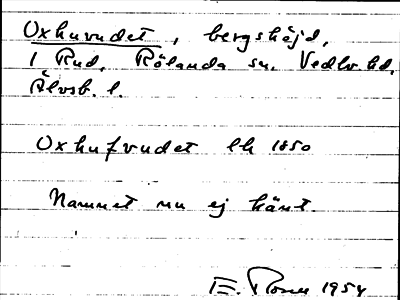 Oxhuvudet, bergshöjd,
1 Rud, Rölanda sn. Vedbo hd,
Älvsb. l.
Oxhufvudet lk 1850
Namnet nu ej känt.
E. 1954